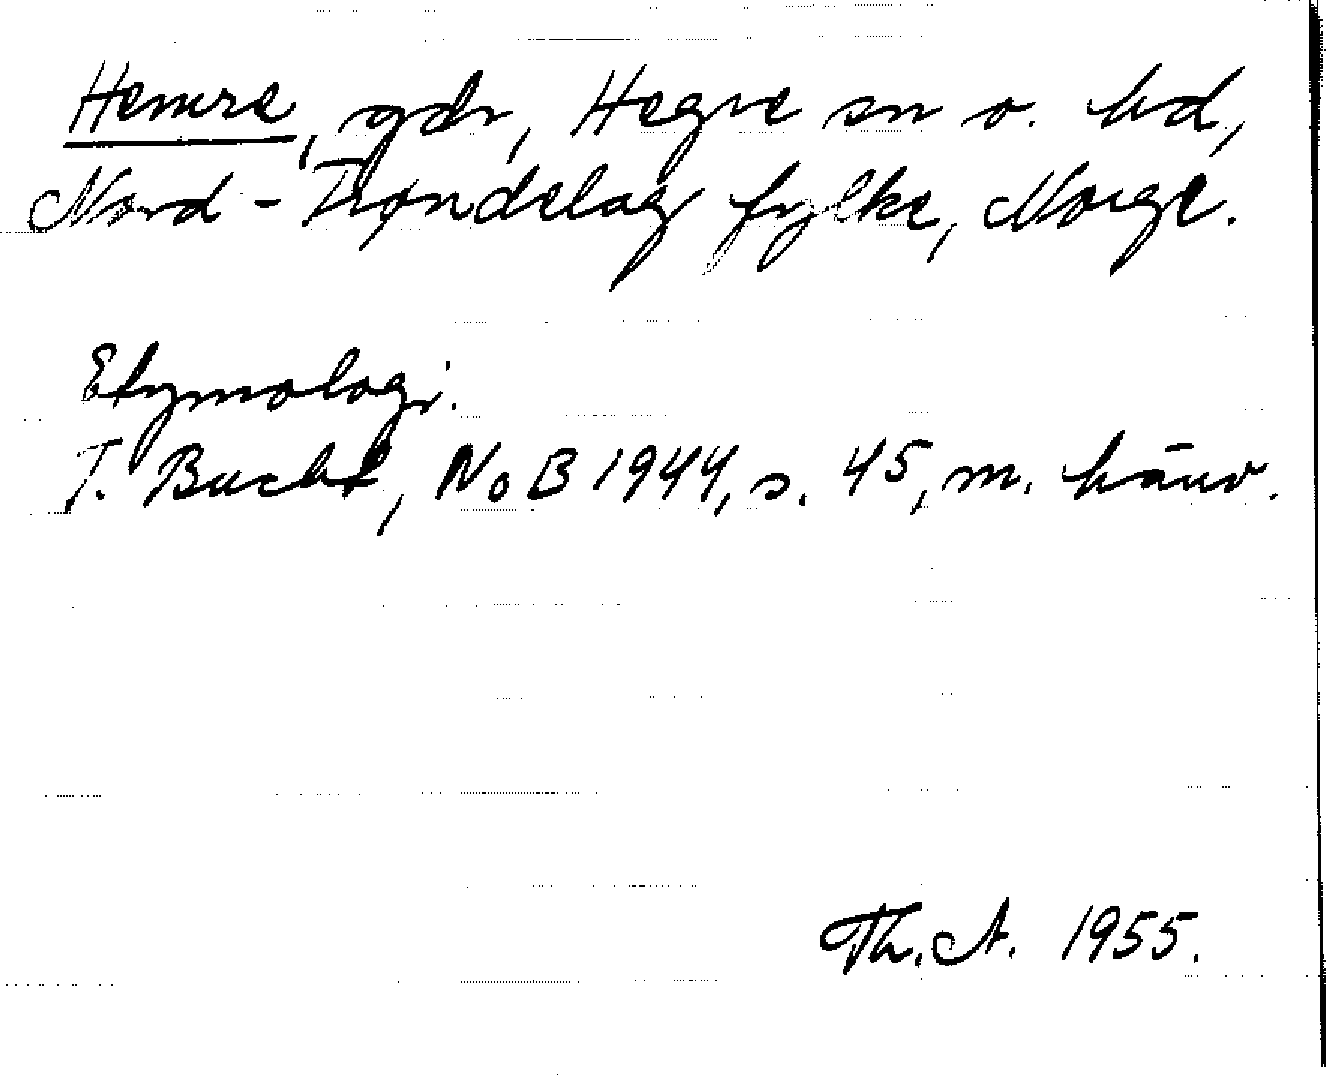 Hemre, gdr, Hegre sn o. hd,
Nord-Trøndelag fylke, Norge.
Etymologi.
T. Bucht, NoB 1944, s. 45, m. hänv.
Th. A. 1955.